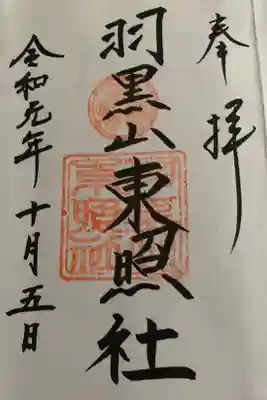 奉拝
羽黒山東照社
令和元年十月五日